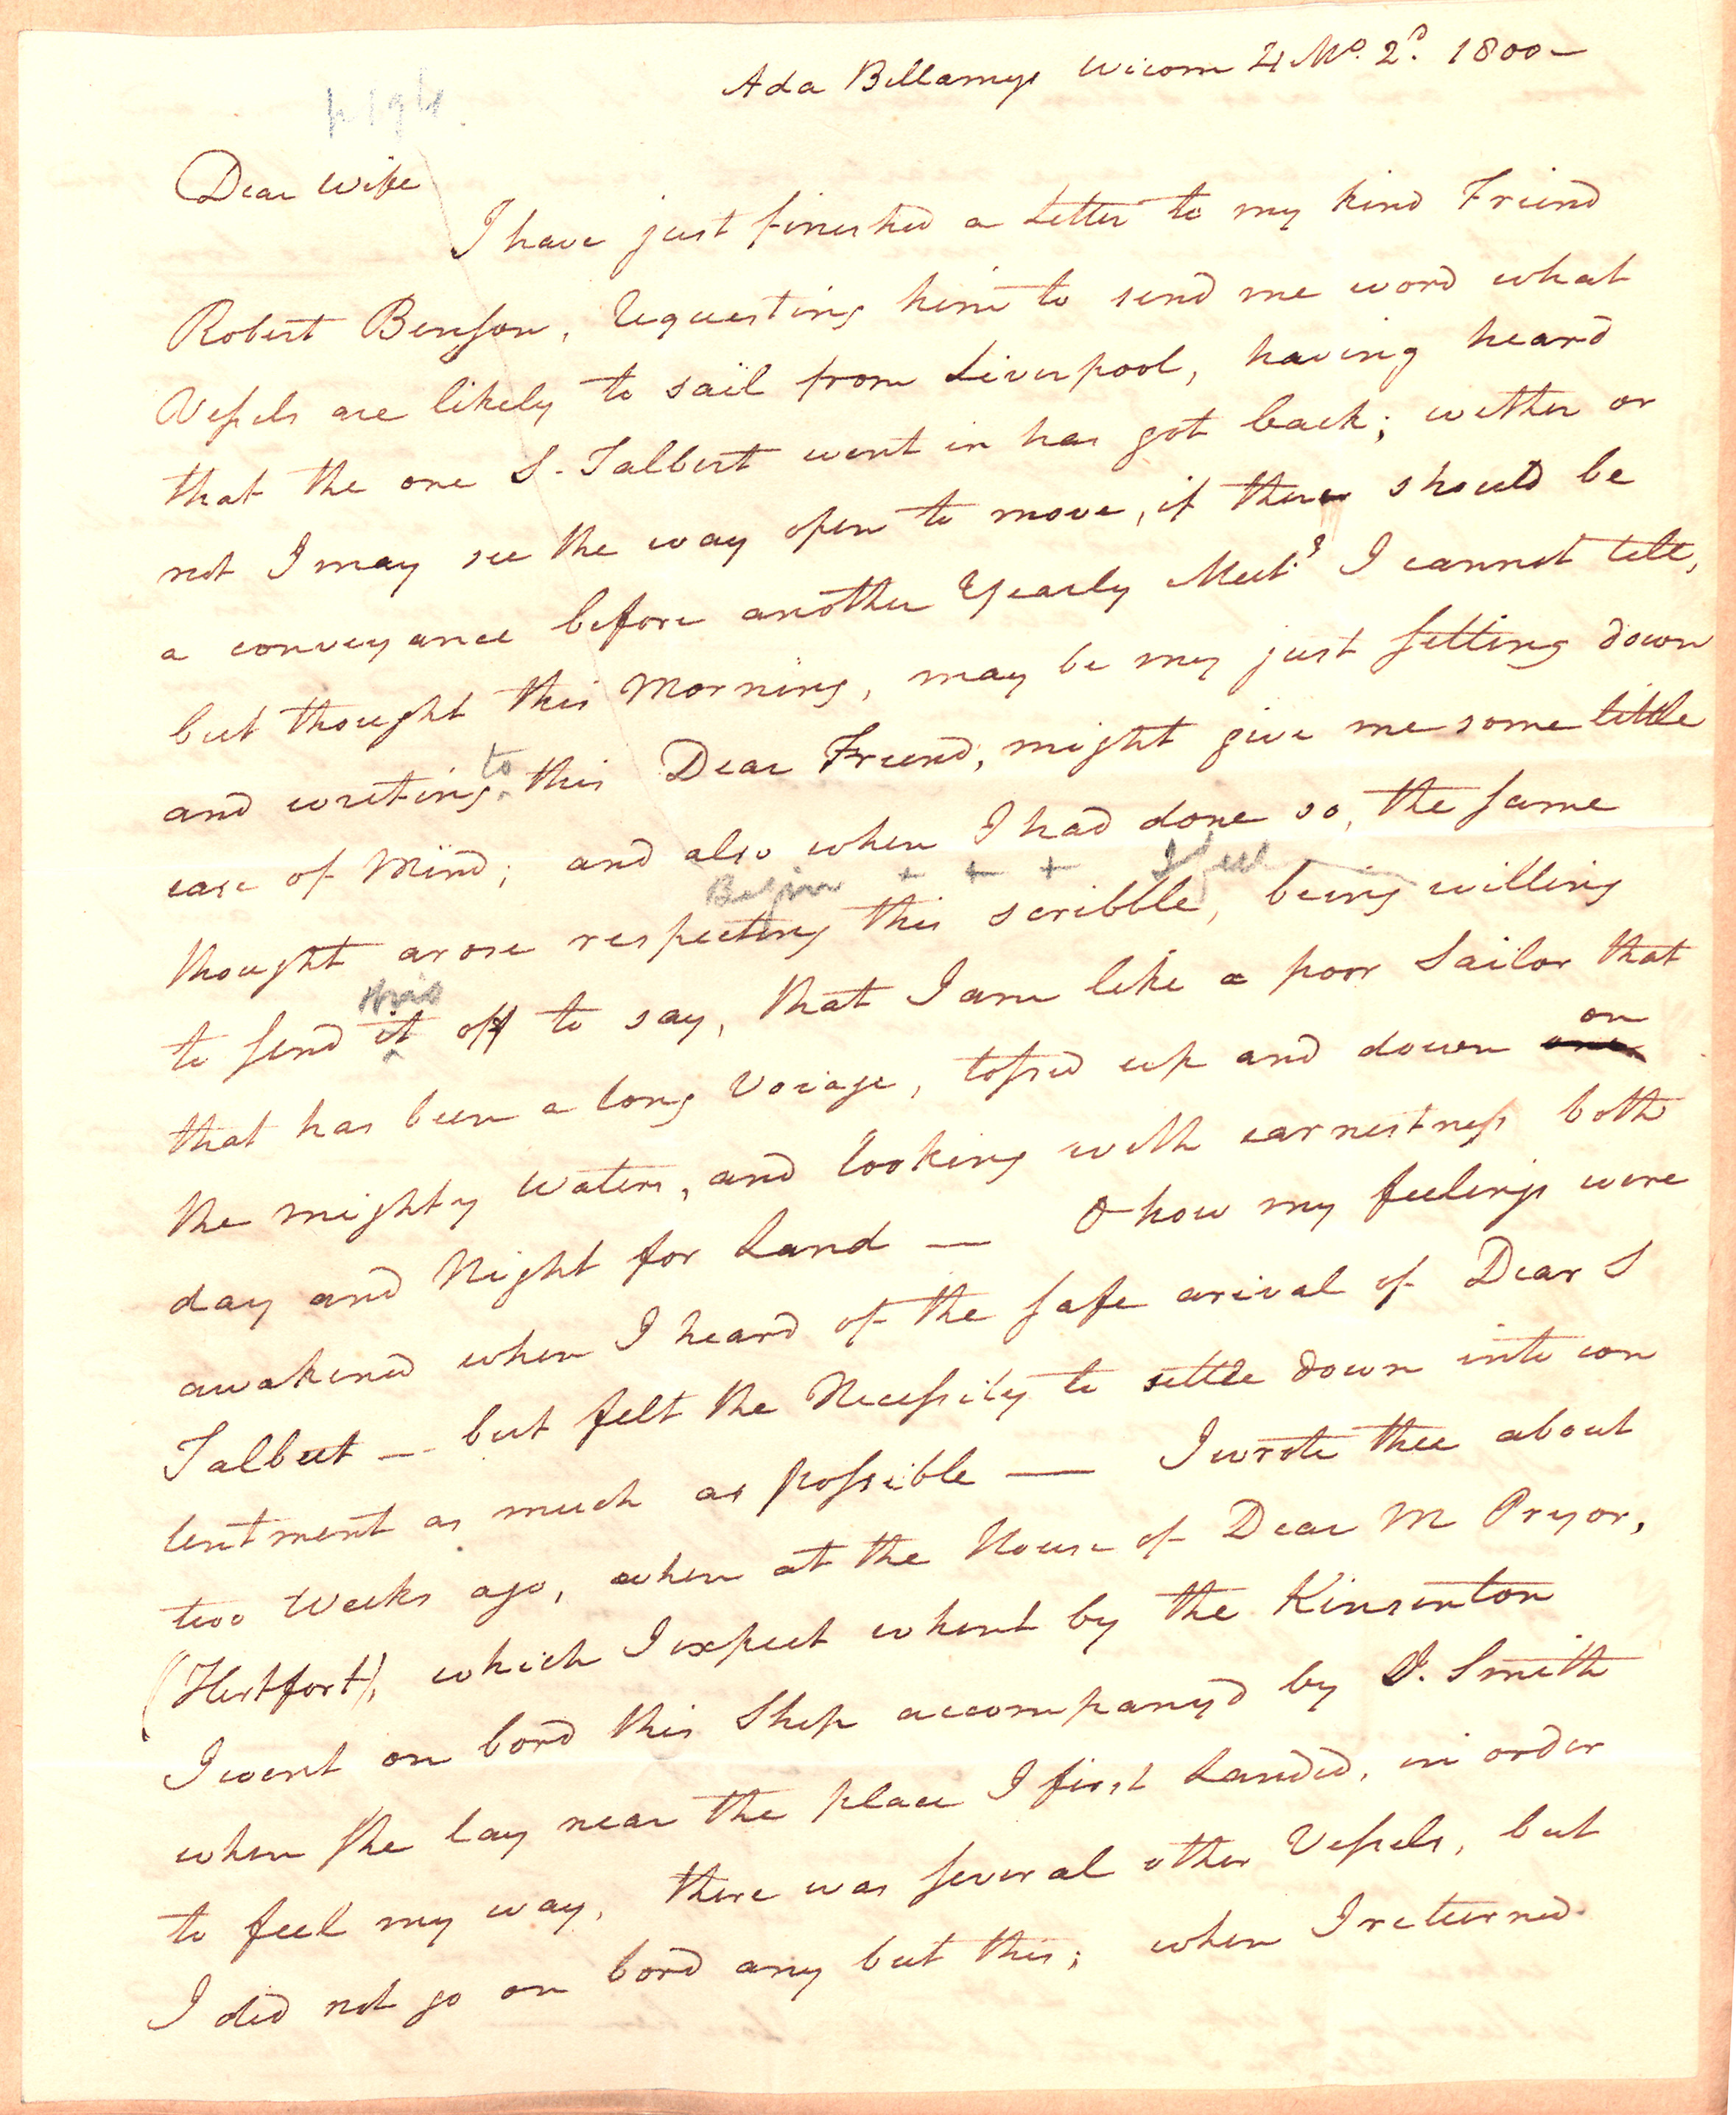 Ada Bellamys Wicom 4 Mo. 2d. 1800 —
p 194.
Dear Wife
I have just finished a Letter to my kind Friend
Robert Benson, requesting him to send me word what
Vessels are likely to sail from Liverpool, having heard
that the one S. Talbert went in has got back; wether or
not I may see the way open to move, if there should be
a conveyance before another Yearly Meetg I cannot tell,
but thought this Morning, may be my just setting down
and writing to this Dear Friend, might give me some little
ease of Mind; and also when I had done so, the same
Begin + + + I feel
thought arose respecting this scribble, being willing
this
to send it off to say, that I am like a poor Sailor that
on
that has been a long Voiage, tossed up and down one
the mighty Waters, and looking with earnestness both
day and Night for Land — O how my feelings were
awakened when I heard of the safe arival of Dear S
Talbert — but felt the Necessity to settle down into con
tentment as much as possible — I wrote thee about
two Weeks ago, when at the House of Dear M Pryor,
(Hertfort), which I expect whent by the Kinsenton
I went on bord this Ship accompanyd by D. Smith
when she lay near the place I first Landed, in order
to feel my way, there was several other Vessels, but
I did not go on bord any but this; when I returned